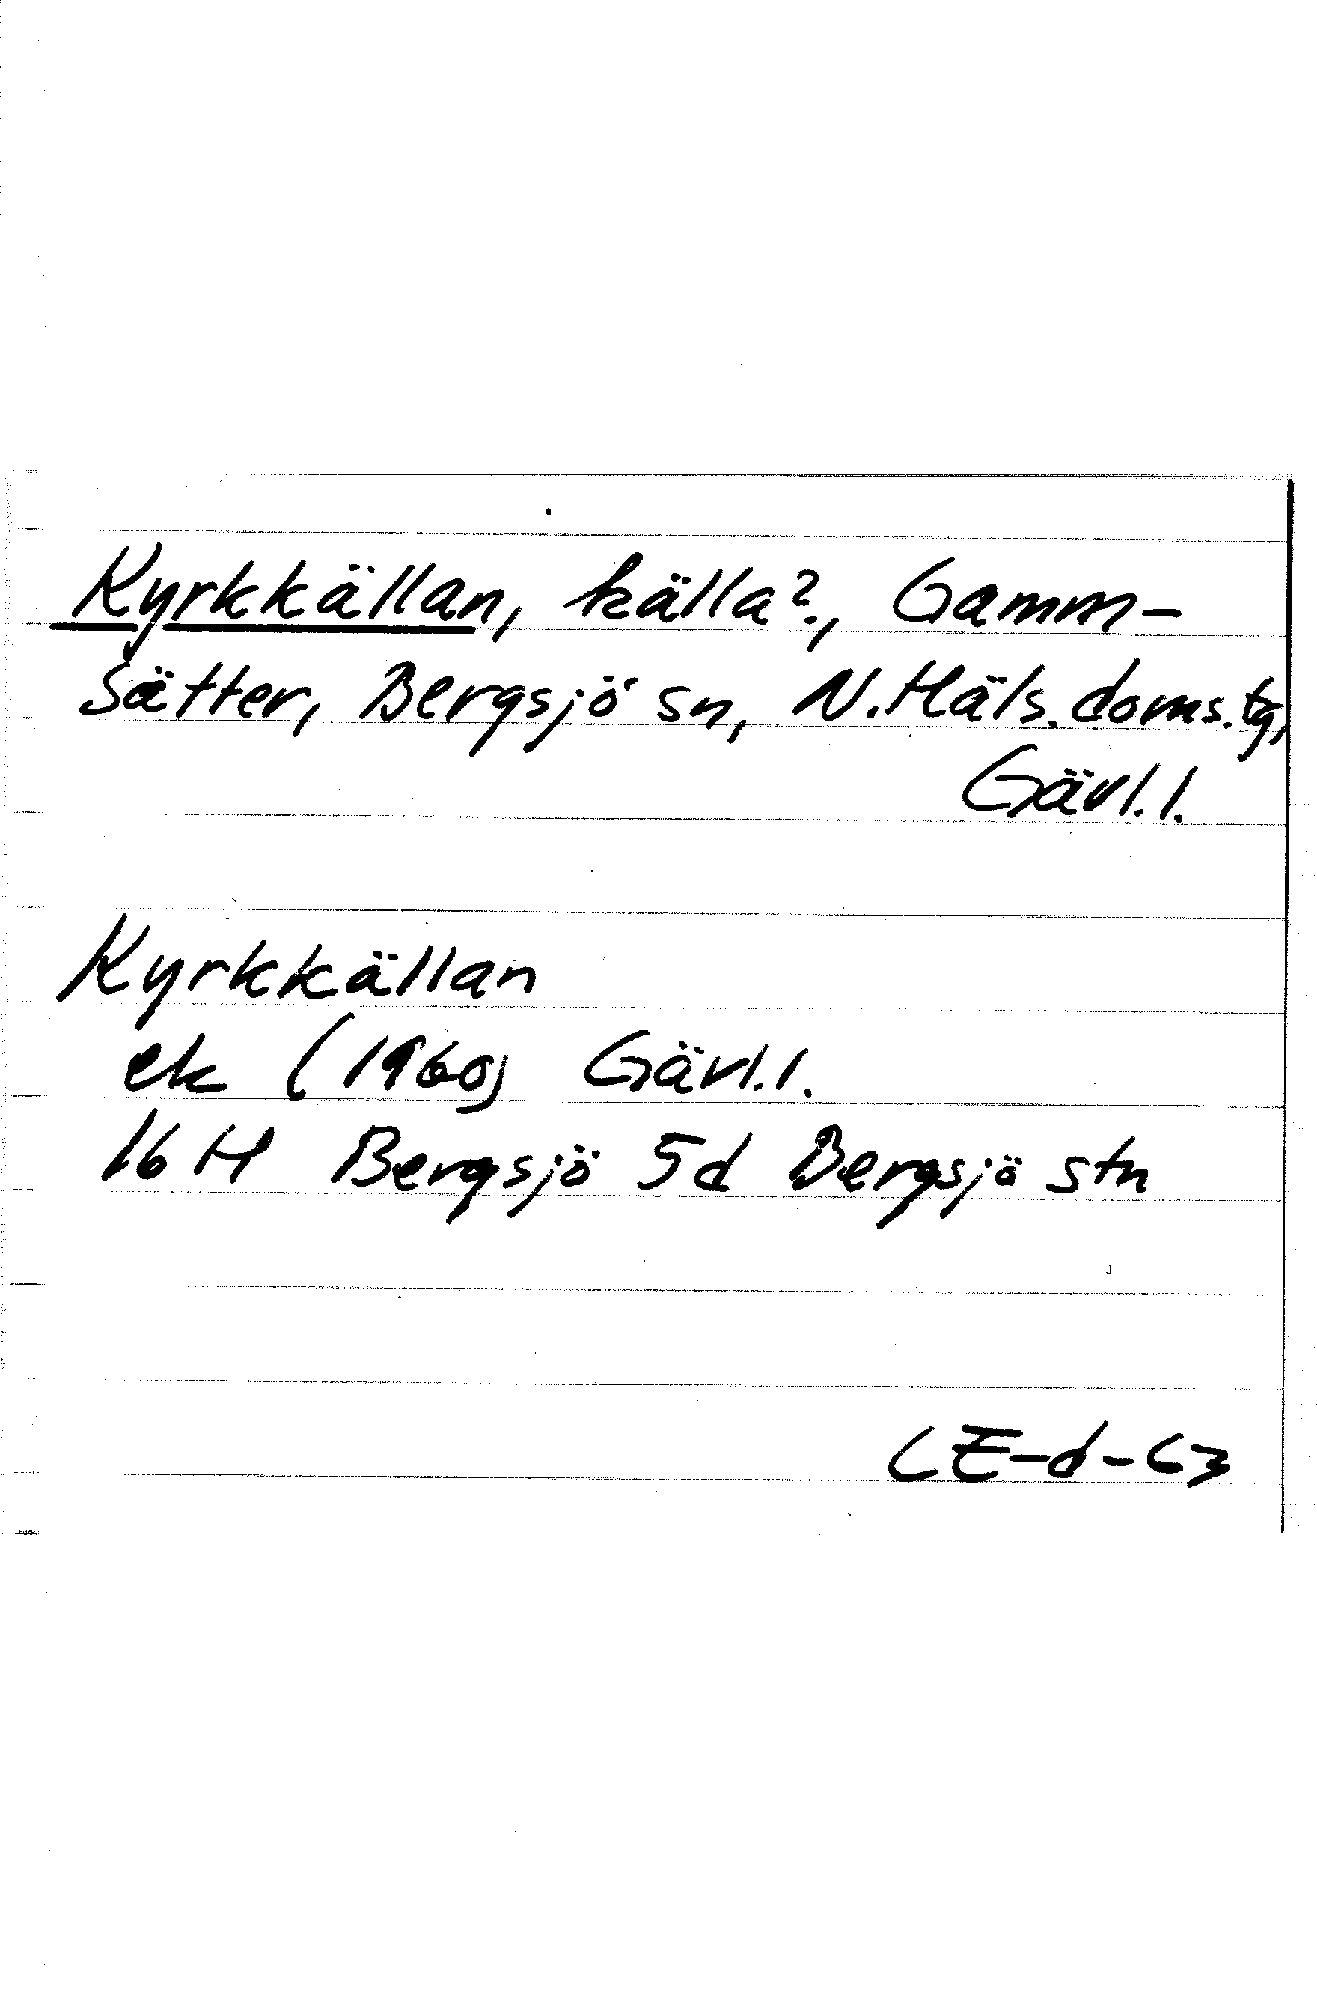 Kyrkkällan, källa?, Gamm-
sätter, Bergsjö sn, N. Häls. doms. tg,
Gävl. l.
Kyrkkällan
ek (1960) Gävl. l.
16 H Bergsjö 5d Bergsjö stn
CE-d-63